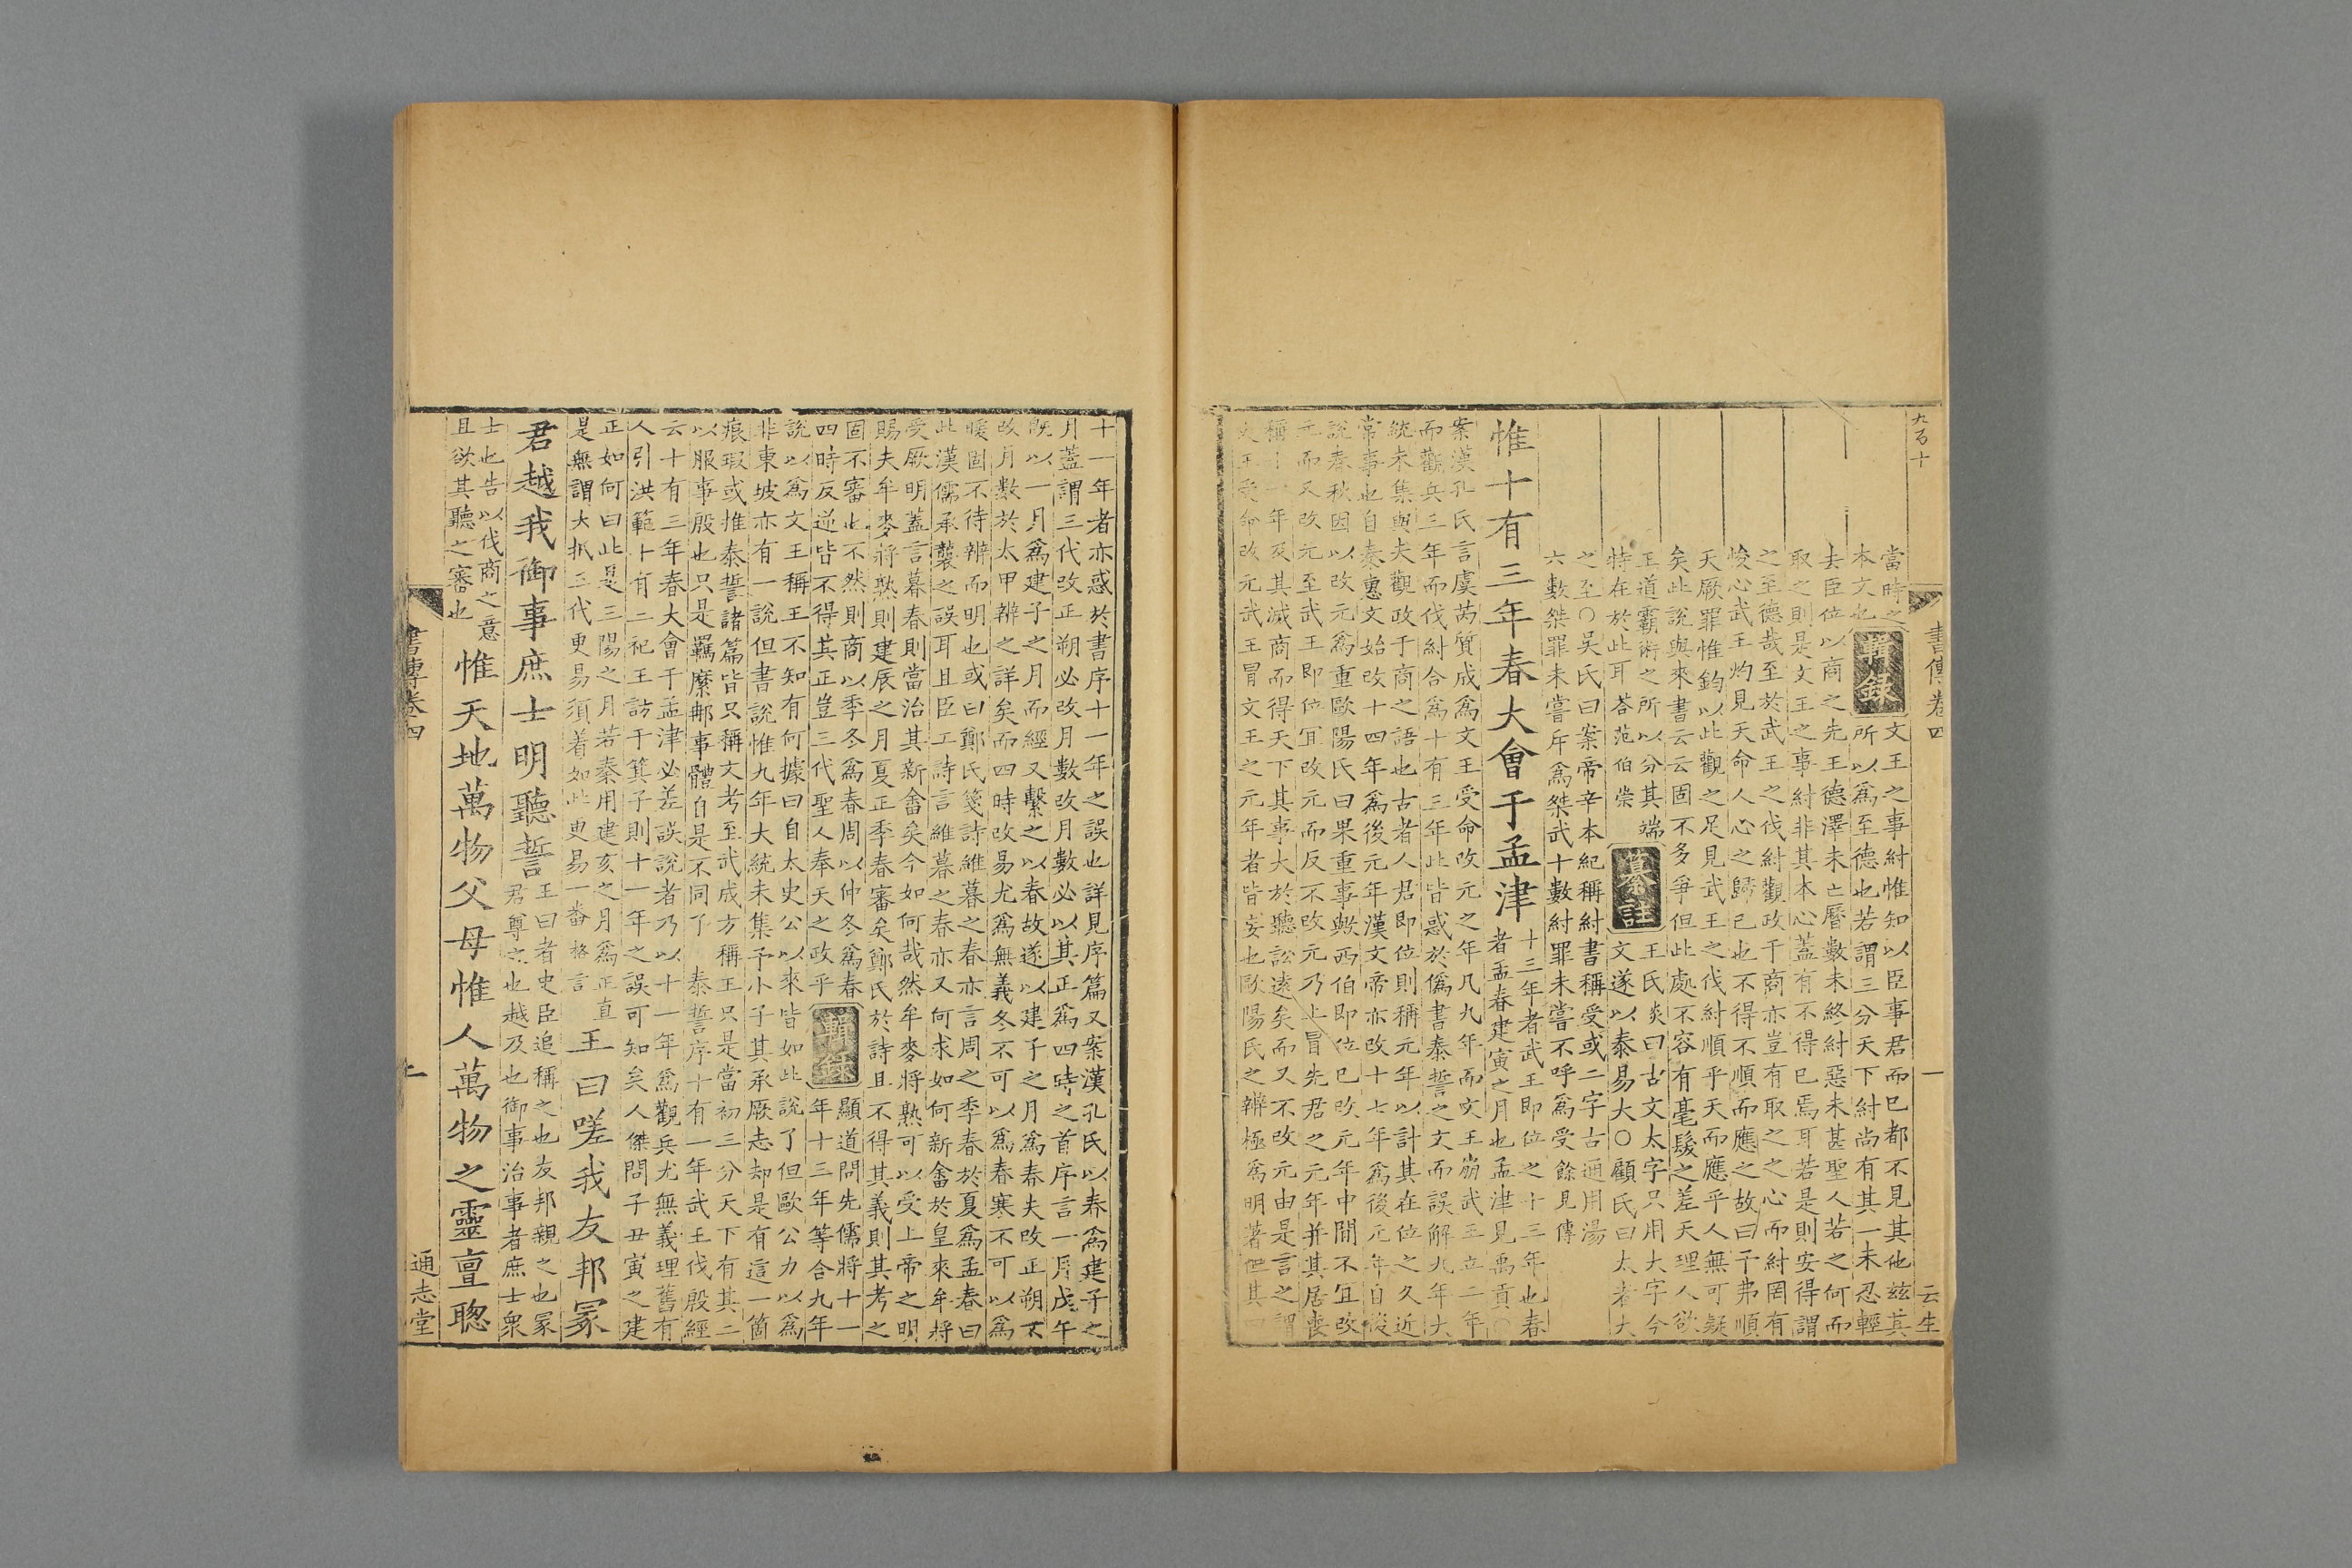 九百十
書傳卷四
一
云生
當時之
本文也
輯錄
文王之事紂惟知以臣事君而已都不見其他茲其
所以爲至德也若謂三分天下紂尚有其一未忍輕
去臣位以商之先王德澤未亡曆數未終紂惡未甚聖人若之何而
取之則是文王之事紂非其本心蓋有不得已焉耳若是則安得謂
之至德哉至於武王之伐紂觀政于商亦豈有取之之心而紂罔有
悛心武王灼見天命人心之歸已也不得不順而應之故曰予弗順
天厥罪惟鈞以此觀之足見武王之伐紂順乎天而應乎人無可疑
矣此說與來書云云固不多爭但此處不容有毫髮之差天理人欲
王道霸術之所以分其端
特在於此耳荅范伯崇
纂註
王氏炎曰古文太字只用大字今
文遂以泰易大○顧氏曰太者大
之至○吳氏曰案帝辛本紀稱紂書稱受或二字古通用湯
六數桀罪未嘗斥爲桀武十數紂罪未嘗不呼爲受餘見傳
惟十有三年春大會于孟津
十三年者武王即位之十三年也春
者孟春建寅之月也孟津見禹貢○
案漢孔氏言虞芮質成爲文王受命改元之年凡九年而文王崩武王立二年
而觀兵三年而伐紂合爲十有三年此皆惑於僞書泰誓之文而誤解九年大
統未集與夫觀政于商之語也古者人君即位則稱元年以計其在位之久近
常事也自秦惠文始改十四年爲後元年漢文帝亦改十七年爲後元年自後
說春秋因以改元爲重歐陽氏曰果重事歟西伯即位已改元年中間不宜改
元而又改元至武王即位宜改元而反不改元乃上冒先君之元年并其居喪
稱十一年及其滅商而得天下其事大於聽訟遠矣而又不改元由是言之謂
文王受命改元武王冒文王之元年者皆妄也歐陽氏之辨極爲明著但其曰
十一年者亦惑於書序十一年之誤也詳見序篇又案漢孔氏以春爲建子之
月蓋謂三代改正朔必改月數改月數必以其正爲四時之首序言一月戊午
旣以一月爲建子之月而經又繫之以春故遂以建子之月爲春夫改正朔不
改月數於太甲辨之詳矣而四時改易尤爲無義冬不可以爲春寒不可以爲
暖固不待辨而明也或曰鄭氏箋詩維暮之春亦言周之季春於夏爲孟春曰
此漢儒承襲之誤耳且臣工詩言維暮之春亦又何求如何新畬於皇來牟將
受厥明蓋言暮春則當治其新畬矣今如何哉然牟麥將熟可以受上帝之明
賜夫牟麥將熟則建辰之月夏正季春審矣鄭氏於詩且不得其義則其考之
固不審也不然則商以季冬爲春周以仲冬爲春
四時反逆皆不得其正豈三代聖人奉天之政乎
輯錄
顯道問先儒將十一
年十三年等合九年
說以爲文王稱王不知有何據曰自太史公以來皆如此說了但歐公力以爲
非東坡亦有一說但書說惟九年大統未集予小子其承厥志却是有這一箇
痕瑕或推泰誓諸篇皆只稱文考至武成方稱王只是當初三分天下有其二
以服事殷也只是羈縻那事體自是不同了　泰誓序十有一年武王伐殷經
云十有三年春大會于孟津必差誤說者乃以十一年爲觀兵尤無義理舊有
人引洪範十有二祀王訪于箕子則十一年之誤可知矣人傑問子丑寅之建
正如何曰此是三陽之月若秦用建亥之月爲正直
是無謂大抵三代更易須着如此更易一番格言
王曰嗟我友邦冢
君越我御事庶士明聽誓
王曰者史臣追稱之也友邦親之也冢
君尊之也越及也御事治事者庶士衆
士也告以伐商之意
且欲其聽之審也
惟天地萬物父母惟人萬物之靈亶聰
書傳卷四
上
通志堂